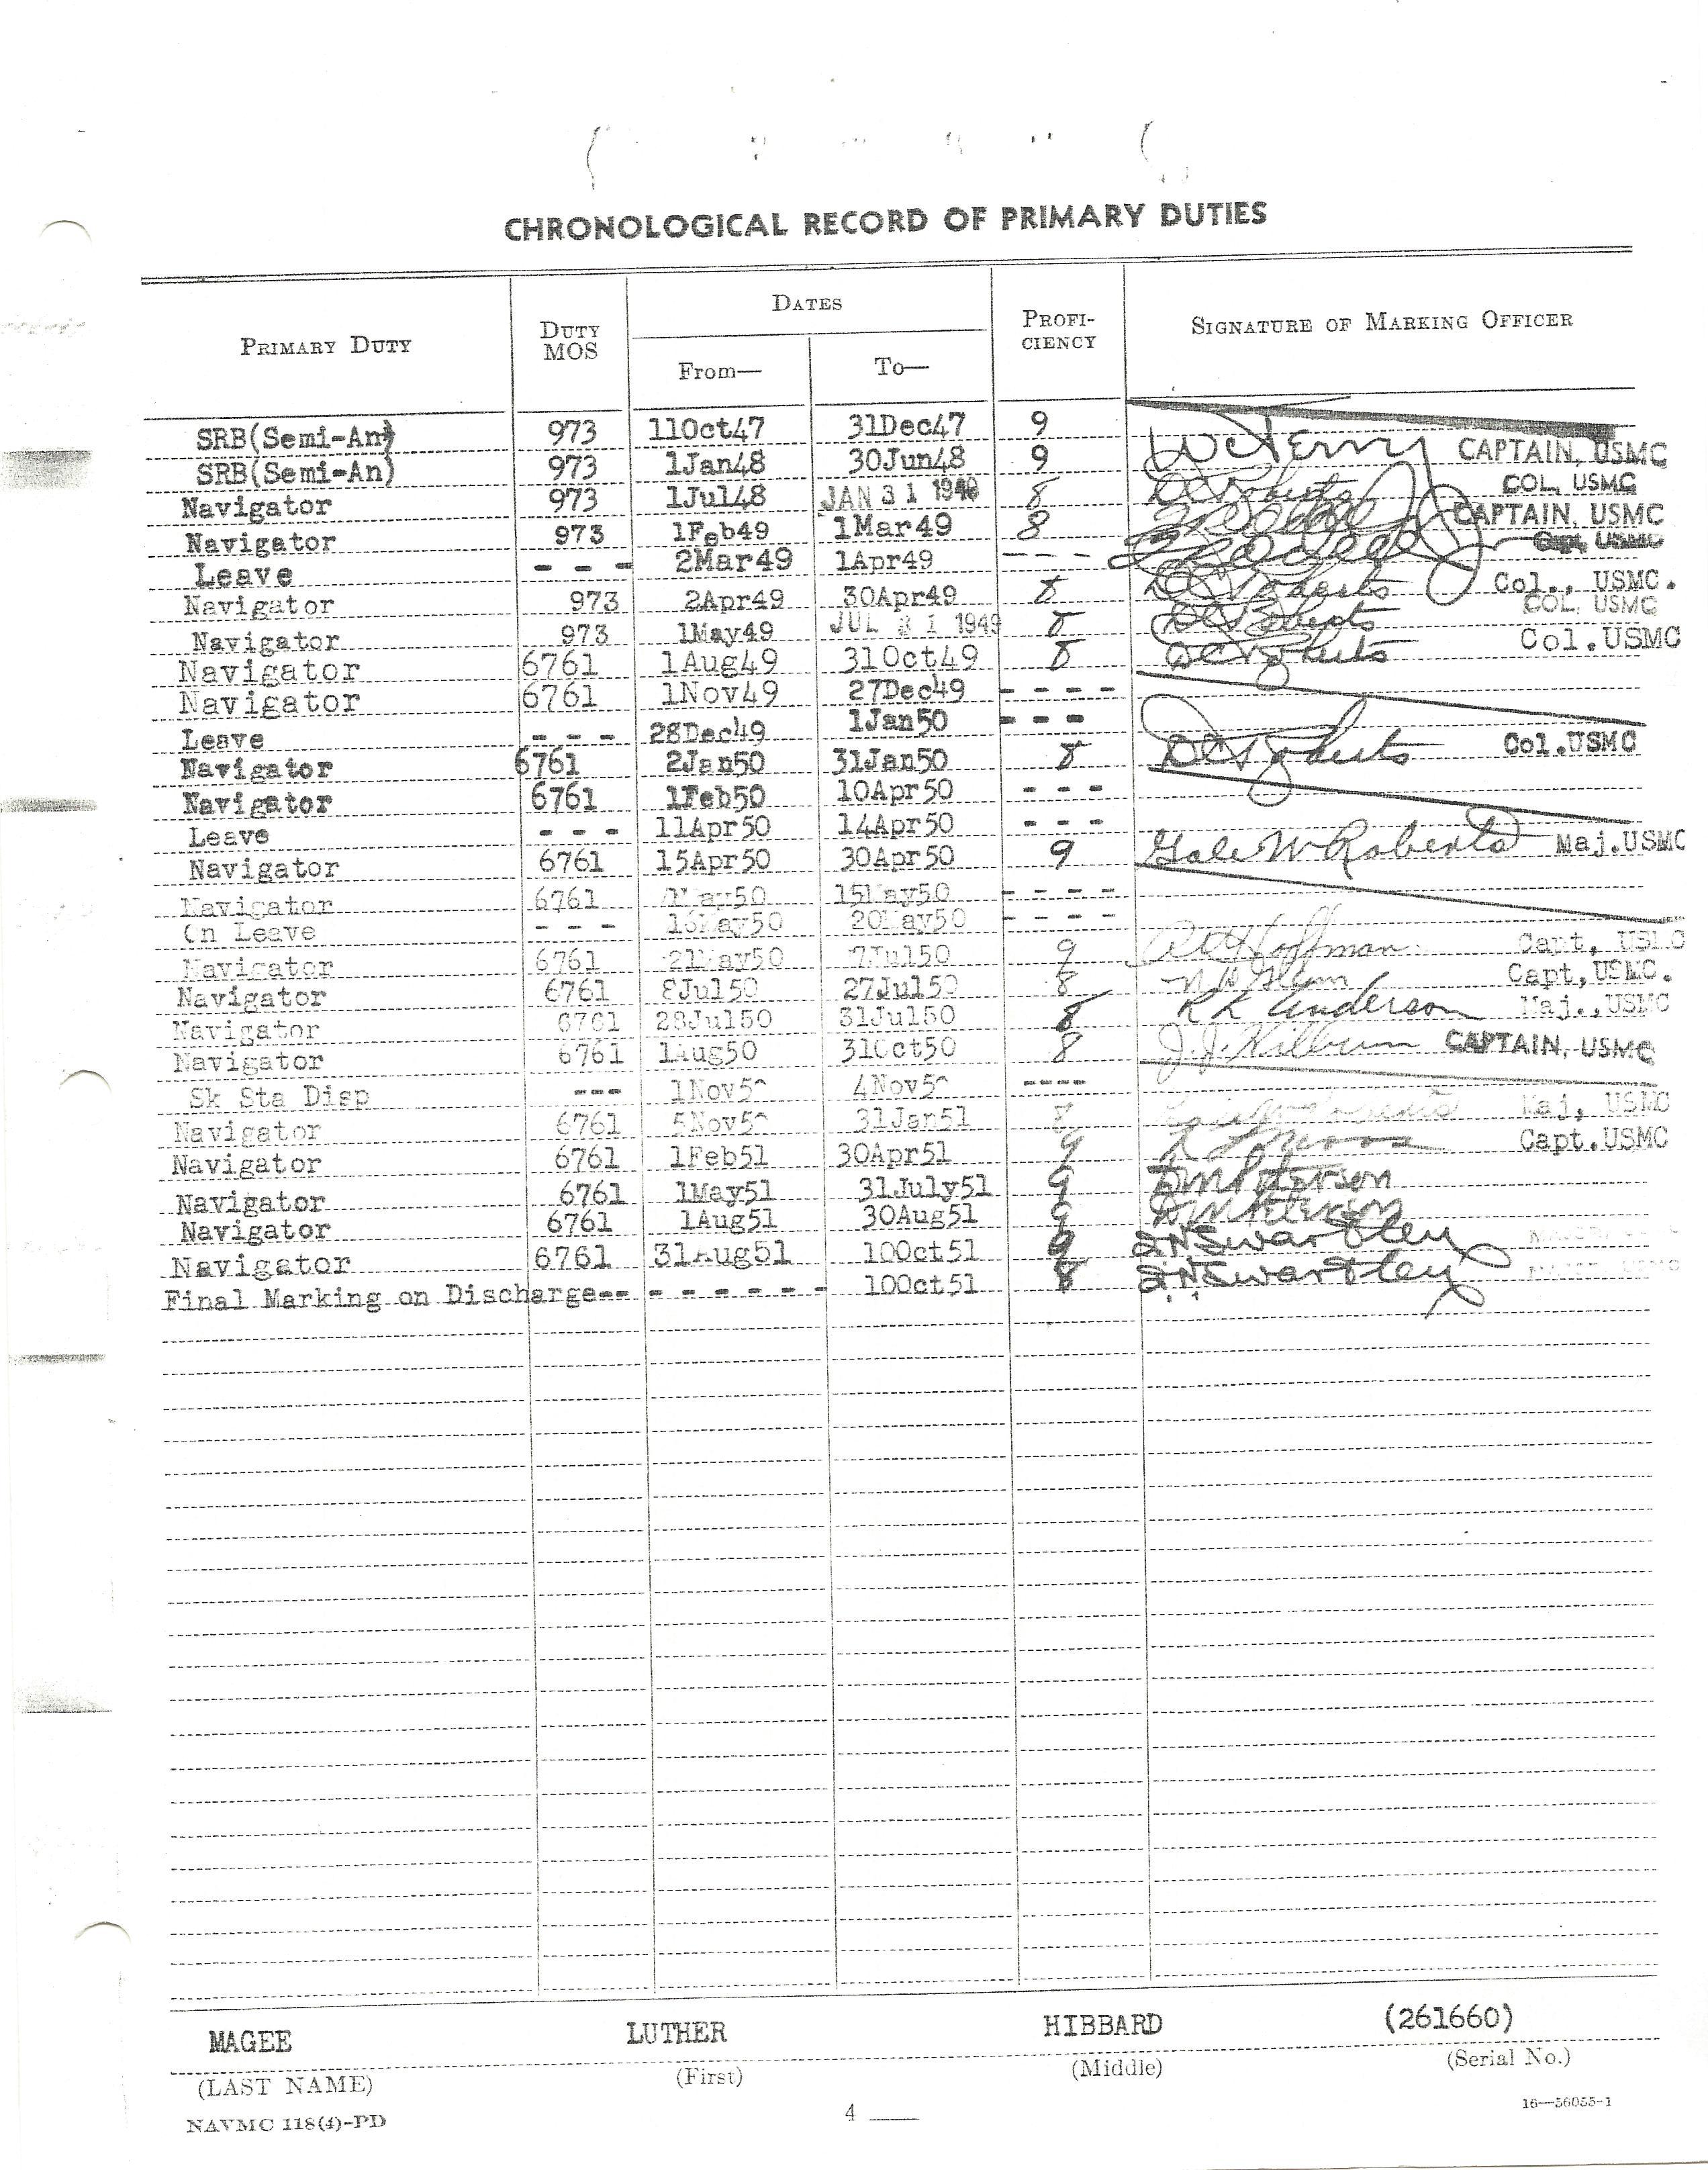 CHRONOLOGICAL RECORD OF PRIMARY DUTIES
PRIMARY DUTY DUTY MOS DATES From— To— PROFI-CIENCY SIGNATURE OF MARKING OFFICER
SRB(Semi-An) 973 11Oct47 31Dec47 9 CAPTAIN, USMC
SRB(Semi-An) 973 1Jan48 30Jun48 9 COL, USMC
Navigator 973 1Jul48 JAN 31 1949 8 CAPTAIN, USMC
Navigator 973 1Feb49 1Mar49 8 Capt, USMC
Leave - - - 2Mar49 1Apr49 - - -
Navigator 973 2Apr49 30Apr49 8 DC Roberts Col., USMC.
Navigator 973 1May49 JUL 31 1949 8 DC Roberts COL, USMC
Navigator 6761 1Aug49 31Oct49 8 DC Roberts Col.USMC
Navigator 6761 1Nov49 27Dec49 - - - -
Leave - - - 28Dec49 1Jan50 - - -
Navigator 6761 2Jan50 31Jan50 8 DC Roberts Col.USMC
Navigator 6761 1Feb50 10Apr50 - - -
Leave - - - 11Apr50 14Apr50 - - -
Navigator 6761 15Apr50 30Apr50 9 Gale W Roberts Maj.USMC
Navigator 6761 1May50 15May50 - - - -
On Leave - - - 16May50 20May50 - - - -
Navigator 6761 21May50 7Jul50 9 Hoffman Capt, USMC
Navigator 6761 8Jul50 27Jul50 8 Capt, USMC.
Navigator 6761 28Jul50 31Jul50 8 RL Anderson Maj., USMC
Navigator 6761 1Aug50 31Oct50 8 J.J. Kilburn CAPTAIN, USMC
Sk Sta Disp --- 1Nov50 4Nov50 ----
Navigator 6761 5Nov50 31Jan51 8 Maj, USMC
Navigator 6761 1Feb51 30Apr51 9 Capt.USMC
Navigator 6761 1May51 31July51 9 DM Peterson
Navigator 6761 1Aug51 30Aug51 9 DM Peterson
Navigator 6761 31Aug51 10Oct51 9 Swartley
Final Marking on Discharge-- - - - - - - 10Oct51 8 Swartley
MAGEE LUTHER HIBBARD (261660)
(LAST NAME) (First) (Middle) (Serial No.)
NAVMC 118(4)-PD 4 16—56055-1